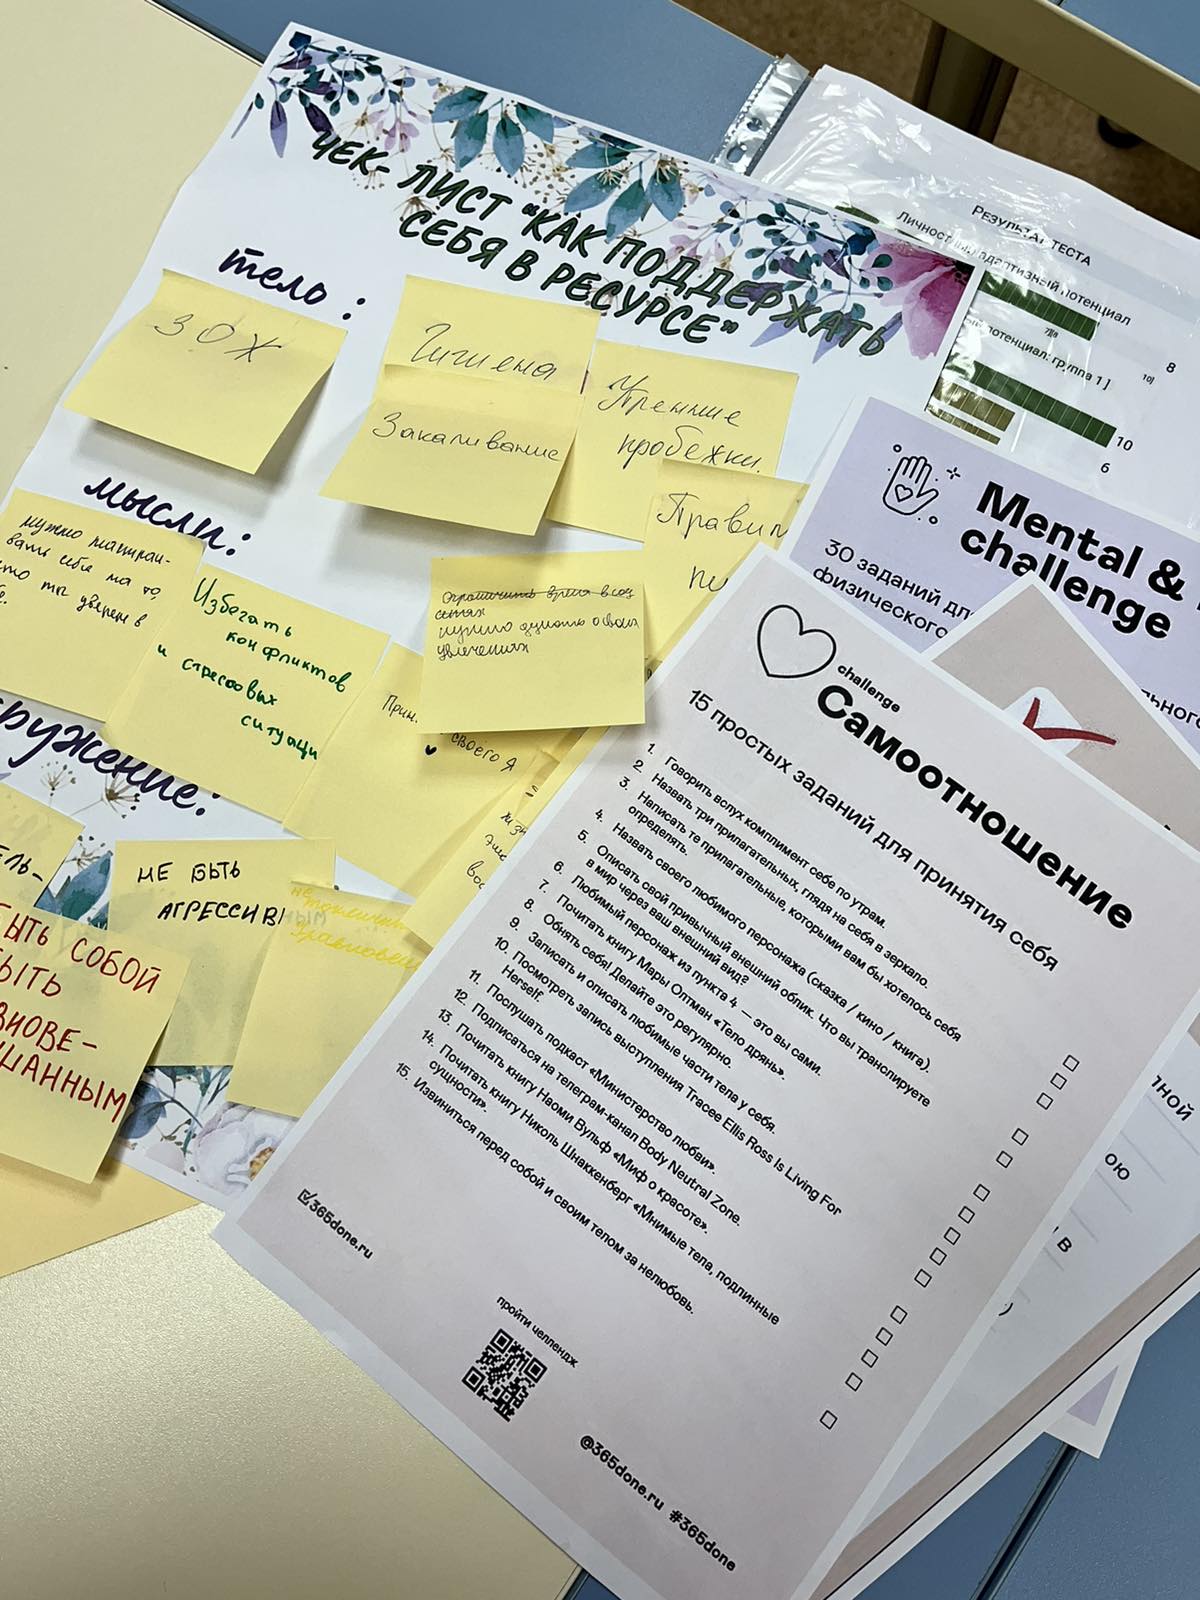 ЧЕК- ЛИСТ "КАК ПОДДЕРЖАТЬ
СЕБЯ В РЕСУРСЕ"
тело :
ЗОЖ
Гигиена
Закаливание
Утренние
пробежки.
Правил
пи
мысли:
нужно
вать себя на то,
что ты уверен в
Избегать
конфликтов
и стрессовых
ситуаци
Ограничить время в соц
сетях
нужно думать о своих
увлечениях
Прин.
своего я
ружение:
ЕЛЬ-
НЕ БЫТЬ
АГРЕССИВНЫМ
ЫТЬ СОБОЙ
БЫТЬ
ВНОВЕ-
ШАННЫМ
РЕЗУЛЬТАТ ТЕСТА
Личностный адаптивный потенциал
8
потенциал: группа 1 ]
10
6
Mental &
challenge
30 заданий дл
физического
льного
challenge
Самоотношение
15 простых заданий для принятия себя
1. Говорить вслух комплимент себе по утрам.
2. Назвать три прилагательных, глядя на себя в зеркало.
3. Написать те прилагательные, которыми вам бы хотелось себя
определять.
4. Назвать своего любимого персонажа (сказка / кино / книга).
5. Описать свой привычный внешний облик. Что вы транслируете
в мир через ваш внешний вид?
6. Любимый персонаж из пункта 4 — это вы сами.
7. Почитать книгу Мары Олтман «Тело дрянь».
8. Обнять себя! Делайте это регулярно.
9. Записать и описать любимые части тела у себя.
10. Посмотреть запись выступления Tracee Ellis Ross Is Living For
Herself.
11. Послушать подкаст «Министерство любви».
12. Подписаться на телеграм-канал Body Neutral Zone.
13. Почитать книгу Наоми Вульф «Миф о красоте».
14. Почитать книгу Николь Шнаккенберг «Мнимые тела, подлинные
сущности».
15. Извиниться перед собой и своим телом за нелюбовь.
365done.ru
пройти челлендж
@365done.ru #365done
лной
ою
В